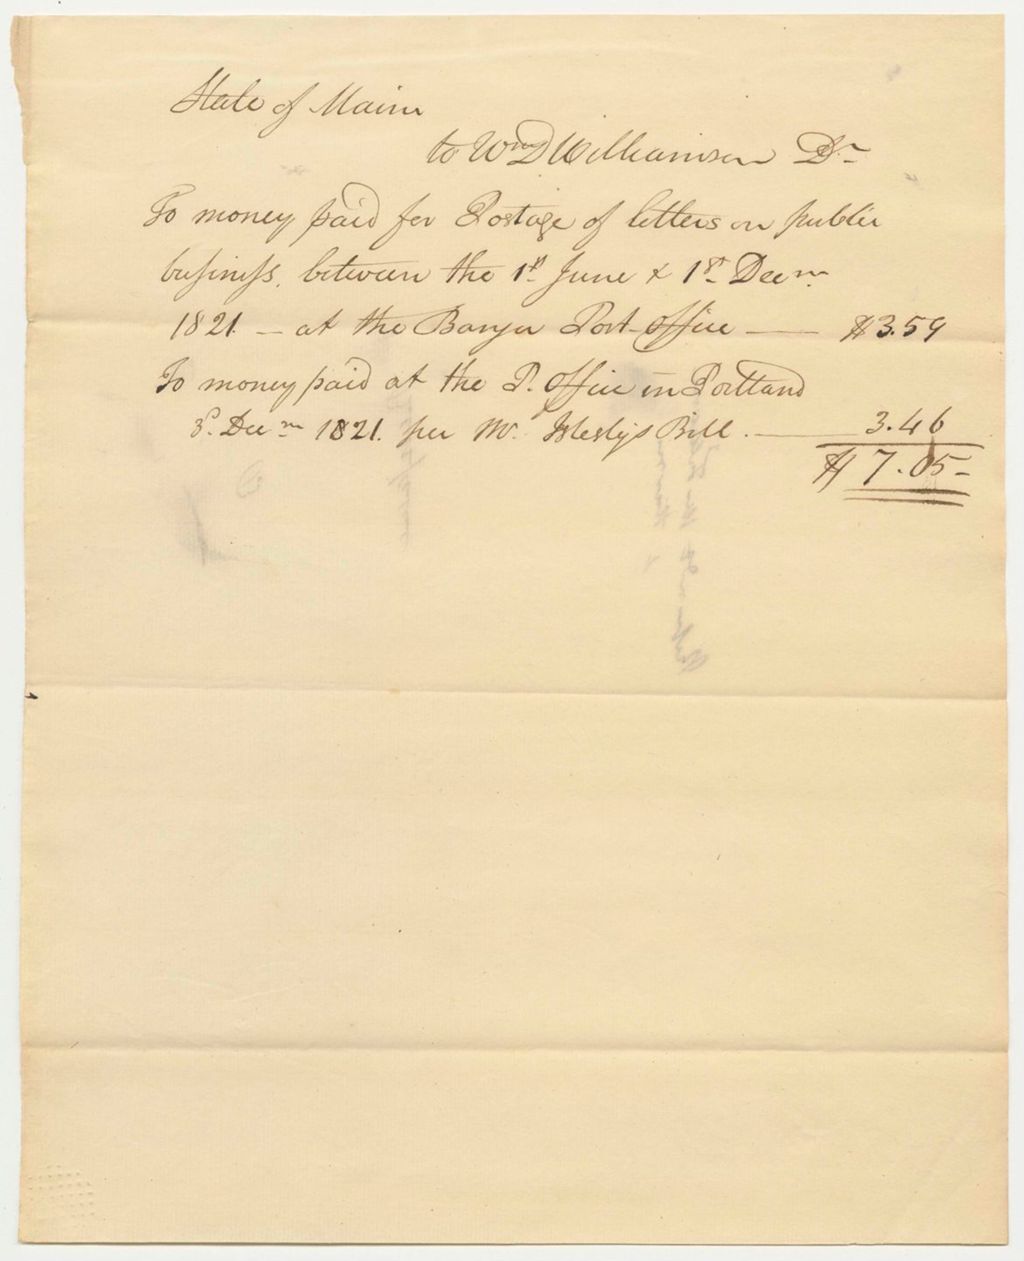 State of Maine
to Wm D Williamson Dr
To money paid for Postage of letters on public
business, between the 1st June & 1st Decm
1821 — at the Bangor Post-Office — $3.59
To money paid at the P. Office in Portland
8. Decm 1821. per Mr. Bill. — 3.46
$7.05-